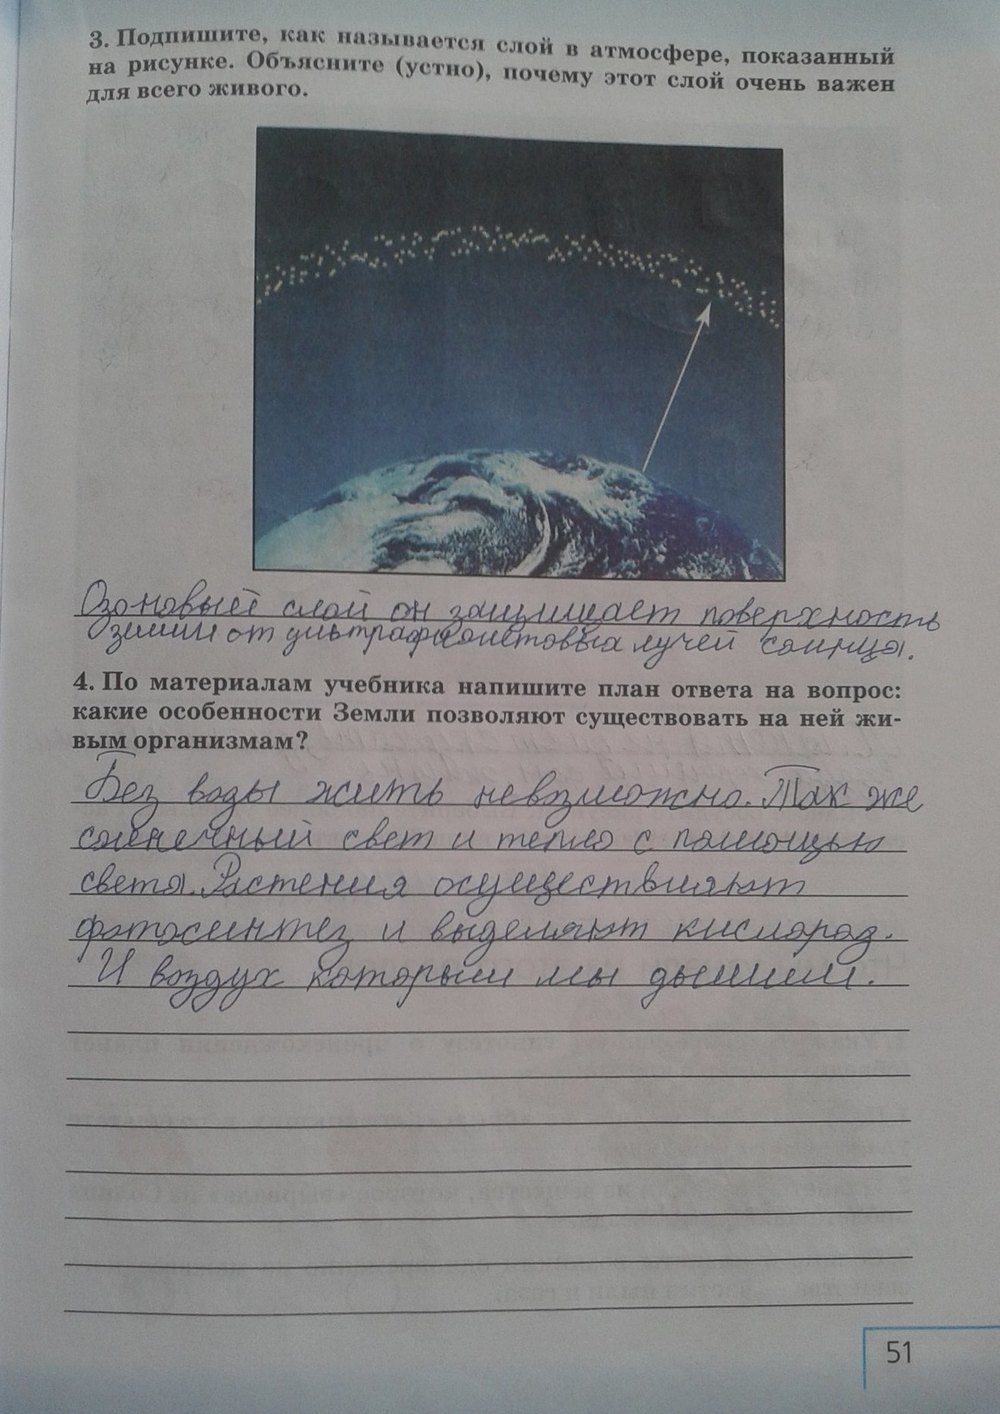 3. Подпишите, как называется слой в атмосфере, показанный
на рисунке. Объясните (устно), почему этот слой очень важен
для всего живого.
Озоновый слой он защищает поверхность
земли от ультрафиолетовых лучей солнца.
4. По материалам учебника напишите план ответа на вопрос:
какие особенности Земли позволяют существовать на ней жи-
вым организмам?
Без воды жить невозможно. Так же
солнечный свет и тепло с помощью
света. Растения осуществляют
фотосинтез и выделяют кислород.
И воздух которым мы дышим.
51